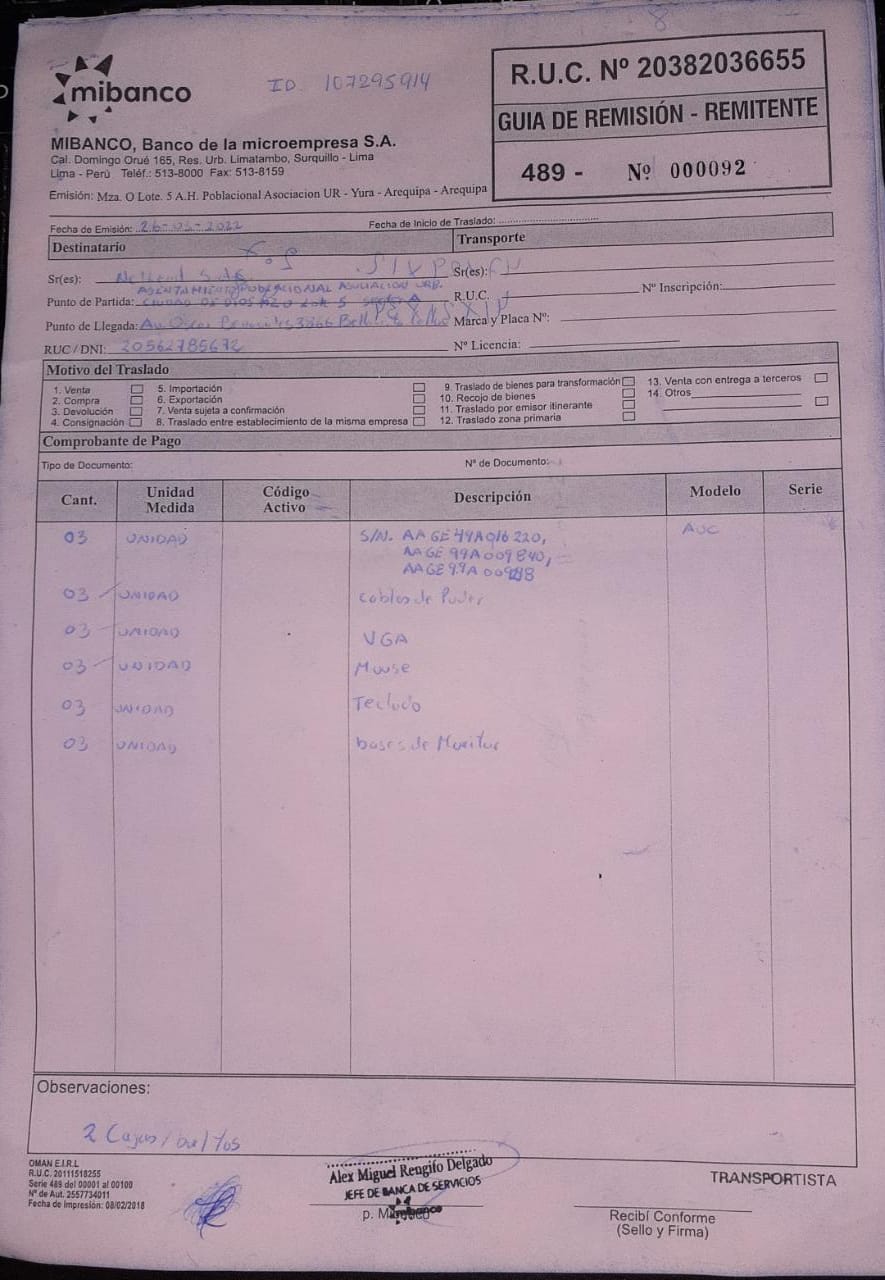 8
mibanco
ID 107295914
R.U.C. Nº 20382036655
GUIA DE REMISIÓN - REMITENTE
489 - Nº 000092
MIBANCO, Banco de la microempresa S.A.
Cal. Domingo Orué 165, Res. Urb. Limatambo, Surquillo - Lima
Lima - Perú Teléf.: 513-8000 Fax: 513-8159
Emisión: Mza. O Lote. 5 A.H. Poblacional Asociacion UR - Yura - Arequipa - Arequipa
Fecha de Emisión: 26-05-2022 Fecha de Inicio de Traslado:
Destinatario Transporte
Sr(es): Sr(es):
ASENTAMIENTO POBLACIONAL ASOCIACION URB.
Punto de Partida: CIUDAD DE DIOS R.U.C. Nº Inscripción:
Punto de Llegada: Av. Oscar 3866 Marca y Placa Nº:
RUC/DNI: 20562785672 Nº Licencia:
Motivo del Traslado
1. Venta 5. Importación 9. Traslado de bienes para transformación 13. Venta con entrega a terceros
2. Compra 6. Exportación 10. Recojo de bienes 14. Otros
3. Devolución 7. Venta sujeta a confirmación 11. Traslado por emisor itinerante
4. Consignación 8. Traslado entre establecimiento de la misma empresa 12. Traslado zona primaria
Comprobante de Pago
Tipo de Documento: Nº de Documento:
Cant. Unidad Medida Código Activo Descripción Modelo Serie
03 UNIDAD S/N. AAGE49A016220, AOC
AAGE99A009840,
03 UNIDAD cables de Poder
03 UNIDAD VGA
03 UNIDAD Mouse
03 UNIDAD Teclado
03 UNIDAD bases de Monitor
Observaciones:
2 Cajas/bultos
OMAN E.I.R.L
R.U.C. 20111518255
Serie 489 del 00001 al 00100
Nº de Aut. 2557734011
Fecha de Impresión: 08/02/2018
Alex Miguel Rengifo Delgado
JEFE DE BANCA DE SERVICIOS
p. Mibanco
TRANSPORTISTA
Recibí Conforme
(Sello y Firma)